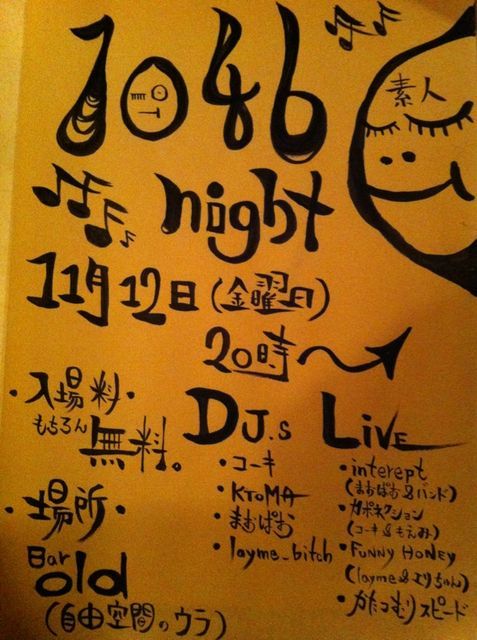 1046
素人
night
11月12日(金曜日)
20時
・入場料・
もちろん
無料。
・場所・
Bar
old
(自由空間のウラ)
DJ.s
・コーキ
・KToMA
・まむぱむ
・layme_bitch
LiVE
・interept
(まむぱむ&バンド)
・カポネクション
(コーキ&もえみ)
・FUNNY HONEY
(layme&えりちゃん)
・かたつむりスピード